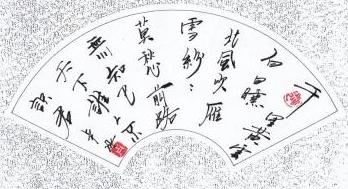 千里黄雲
白日曛
北風吹雁
雪紛々
莫愁前路
無知己
天下誰人不
識君